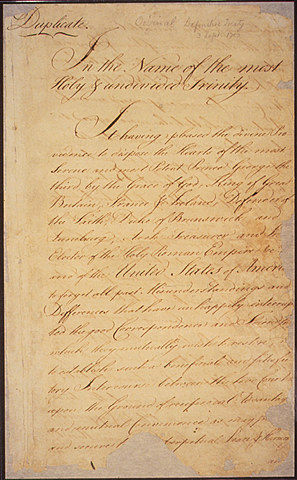 Duplicate.
Original Definitive Treaty
3 Sept. 1783
In the Name of the most
Holy & undivided Trinity.
It having pleased the divine Pro
vidence to dispose the Hearts of the most
Serene and most Potent Prince George the
third, by the Grace of God, King of Great
Britain, France & Ireland, Defender of
the Faith, Duke of Brunswick and
Lunebourg, Arch Treasurer and
Elector of the Holy Roman Empire
and of the United States of America
to forget all past Misunderstandings and
Differences that have unhappily interrup
ted the good Correspondence and Friendship
which they mutually wish to restore;
to establish such a beneficial and satisfac
tory Intercourse between the two Countries
upon the Ground of reciprocal Advantages
and mutual Convenience as may
and secure perpetual Peace &